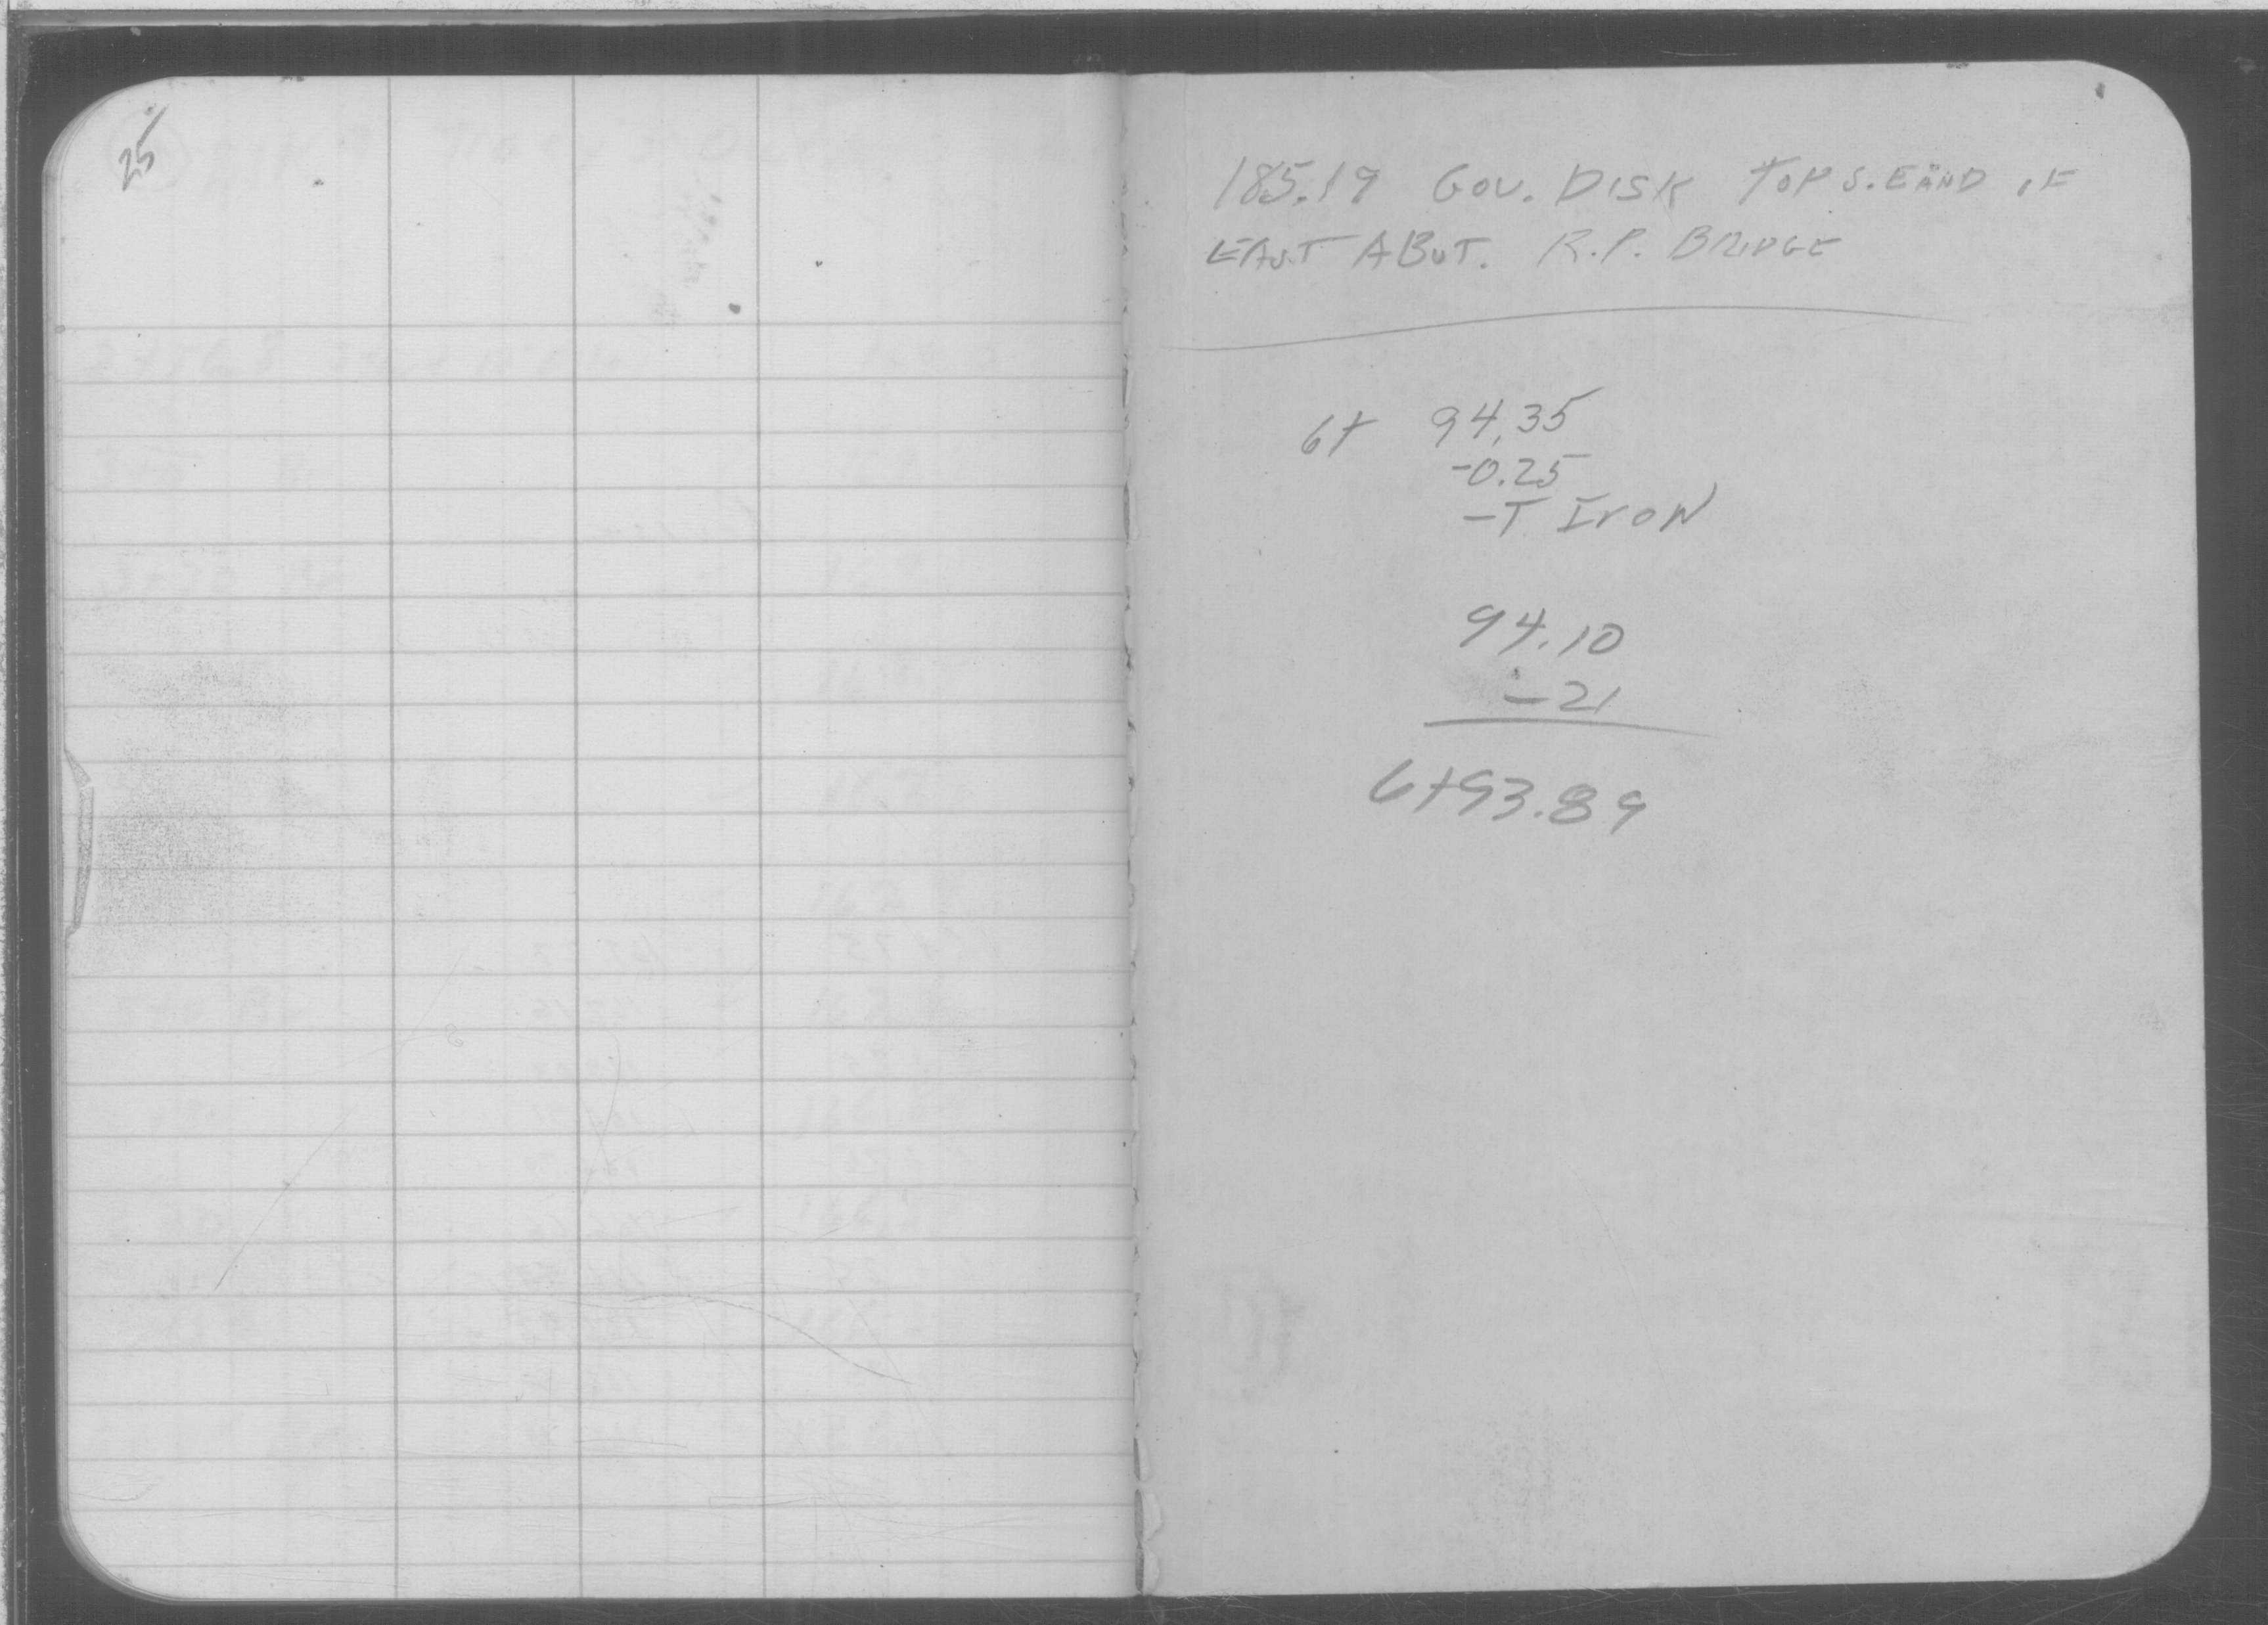 25
185.19 GOV. DISK TOP S. END OF
EAST ABUT. R.P. BRIDGE
6+ 94.35
-0.25
-T IroN
94.10
-21
6+93.89